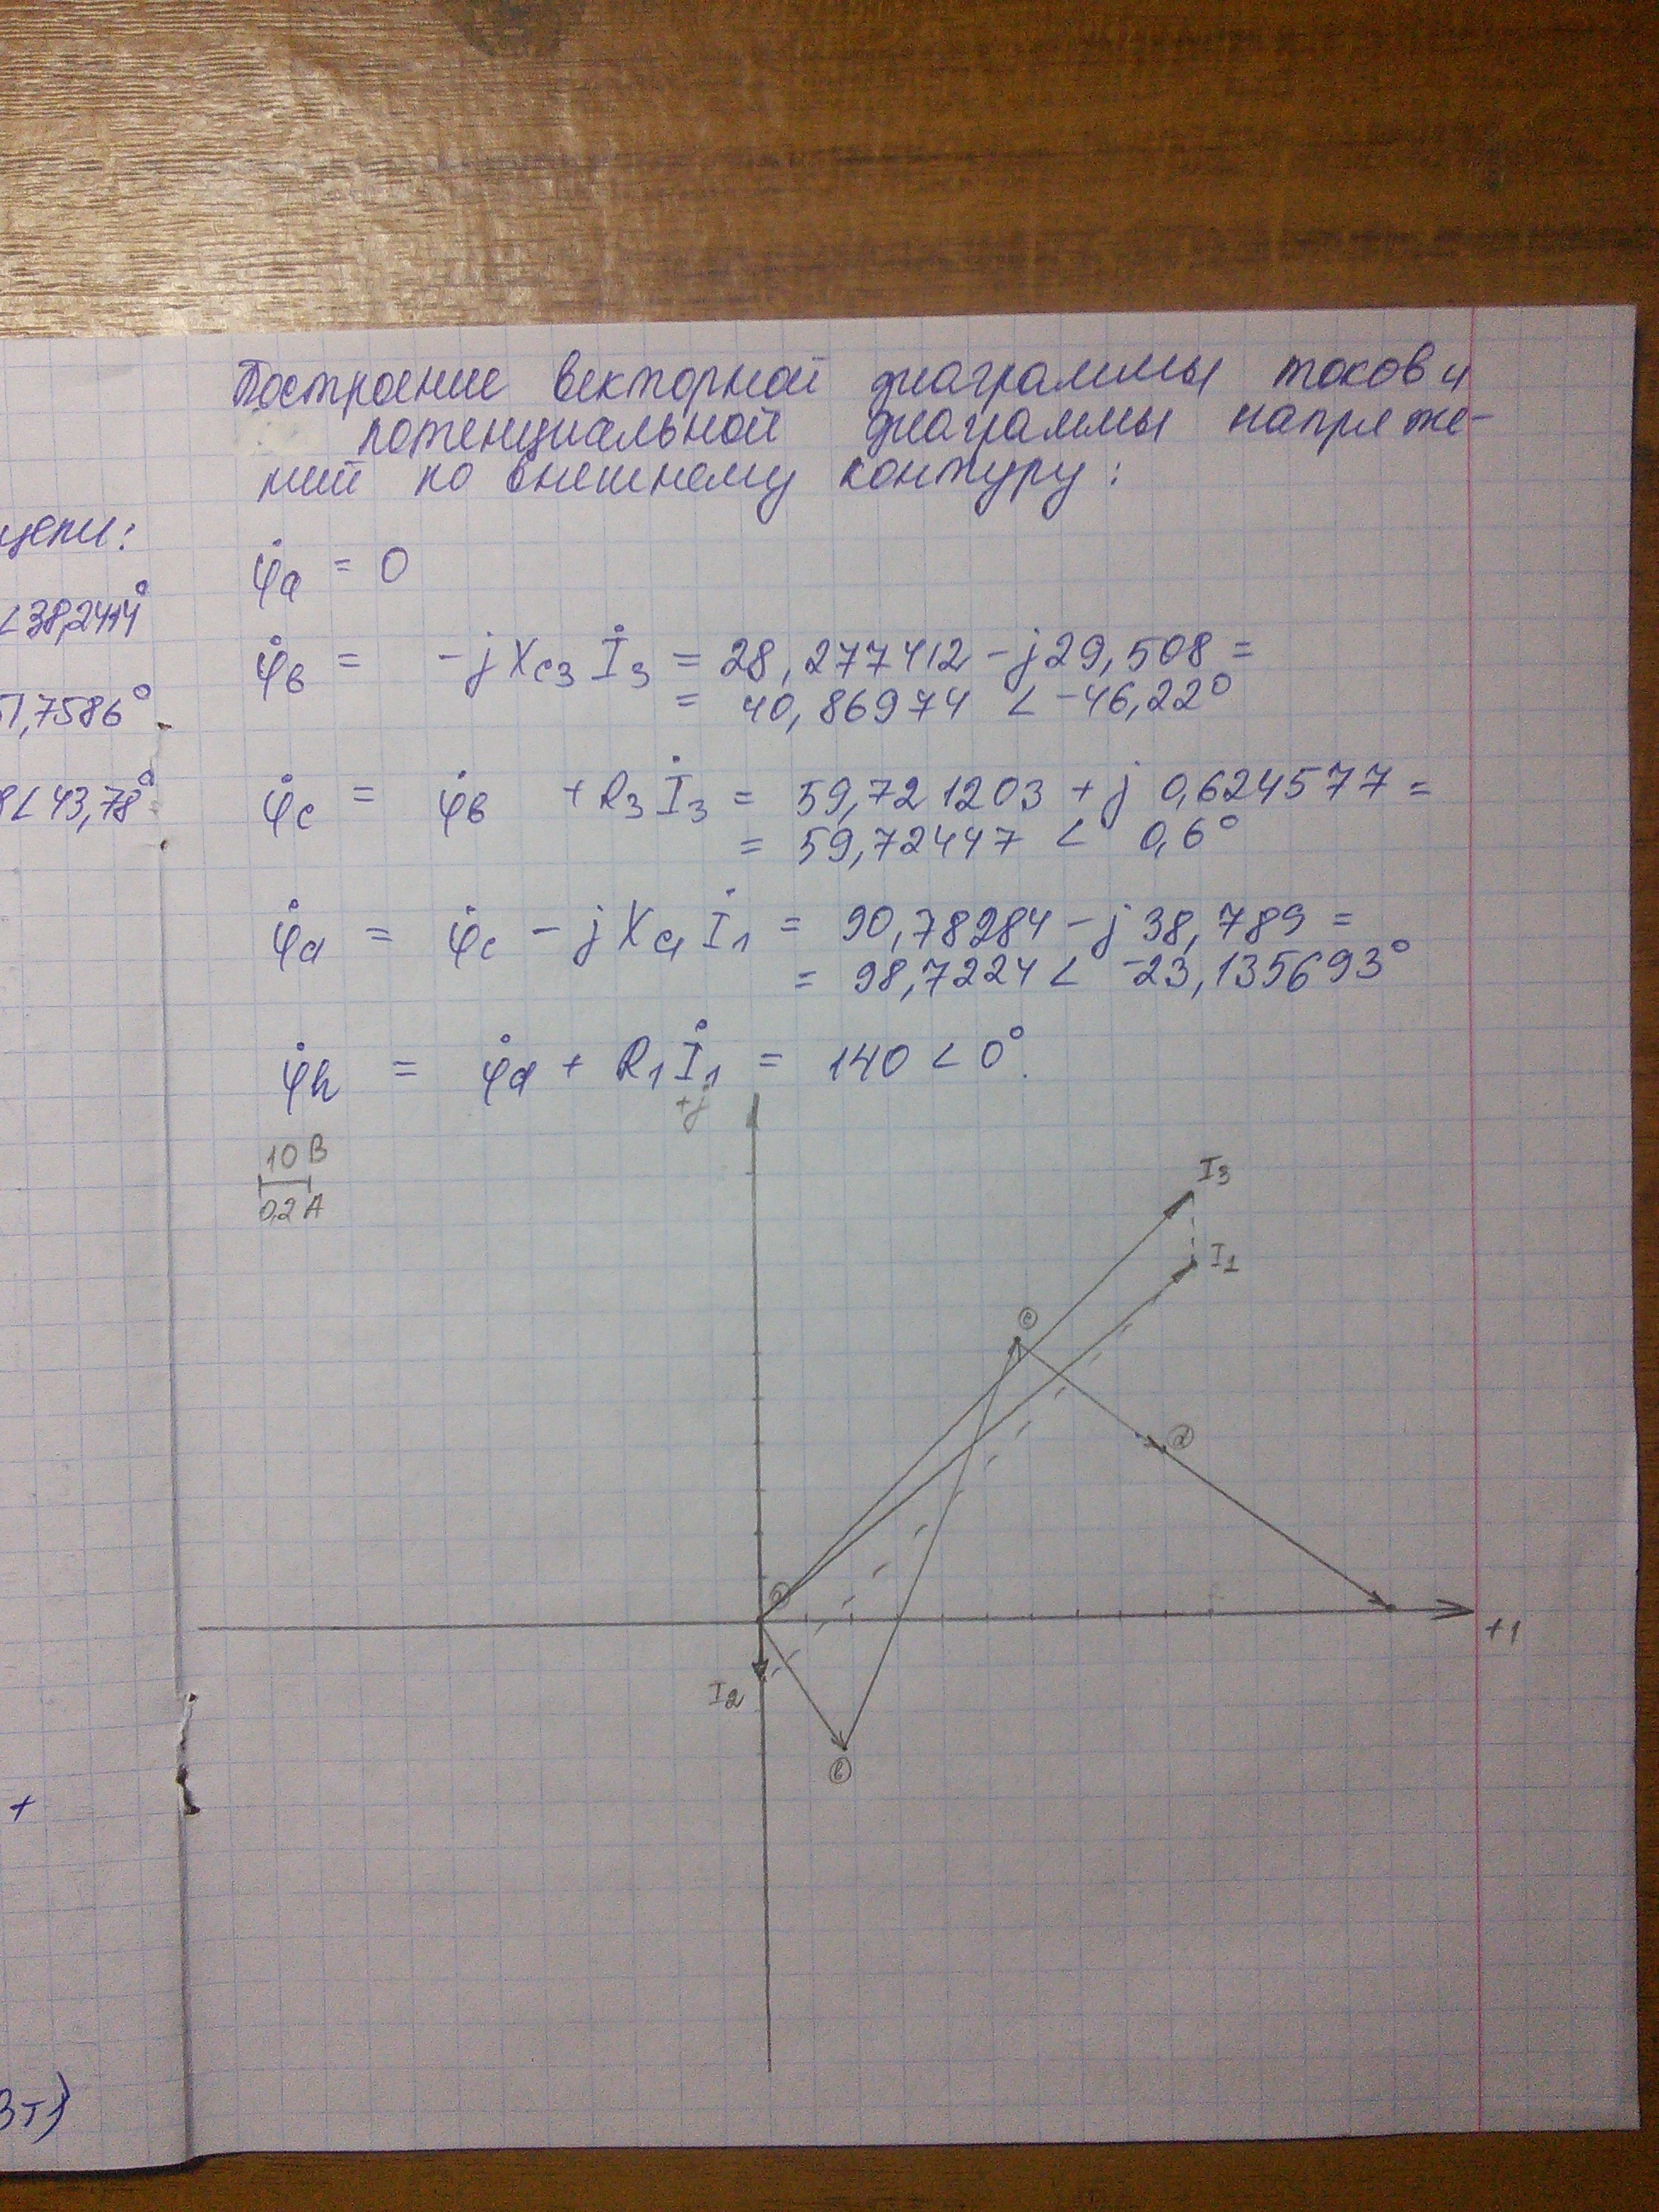 цепи:
<38,2414°
51,7586°
8<43,78°
+
Вт)
Построение векторной диаграммы токов и
потенциальной диаграммы напряже-
ний по внешнему контуру:
φ̇a = 0
φ̇в = -jXc3 İ3 = 28,277412 - j29,508 =
= 40,86974 < -46,22°
φ̇c = φ̇в + R3 İ3 = 59,721203 + j 0,624577 =
= 59,72447 < 0,6°
φ̇d = φ̇c - jXc1 İ1 = 90,78284 - j 38,789 =
= 98,7224 < -23,135693°
φ̇h = φ̇d + R1 İ1 = 140 < 0°.
+j
10 В
0,2 А
I3
I1
c
d
a
+1
I2
в